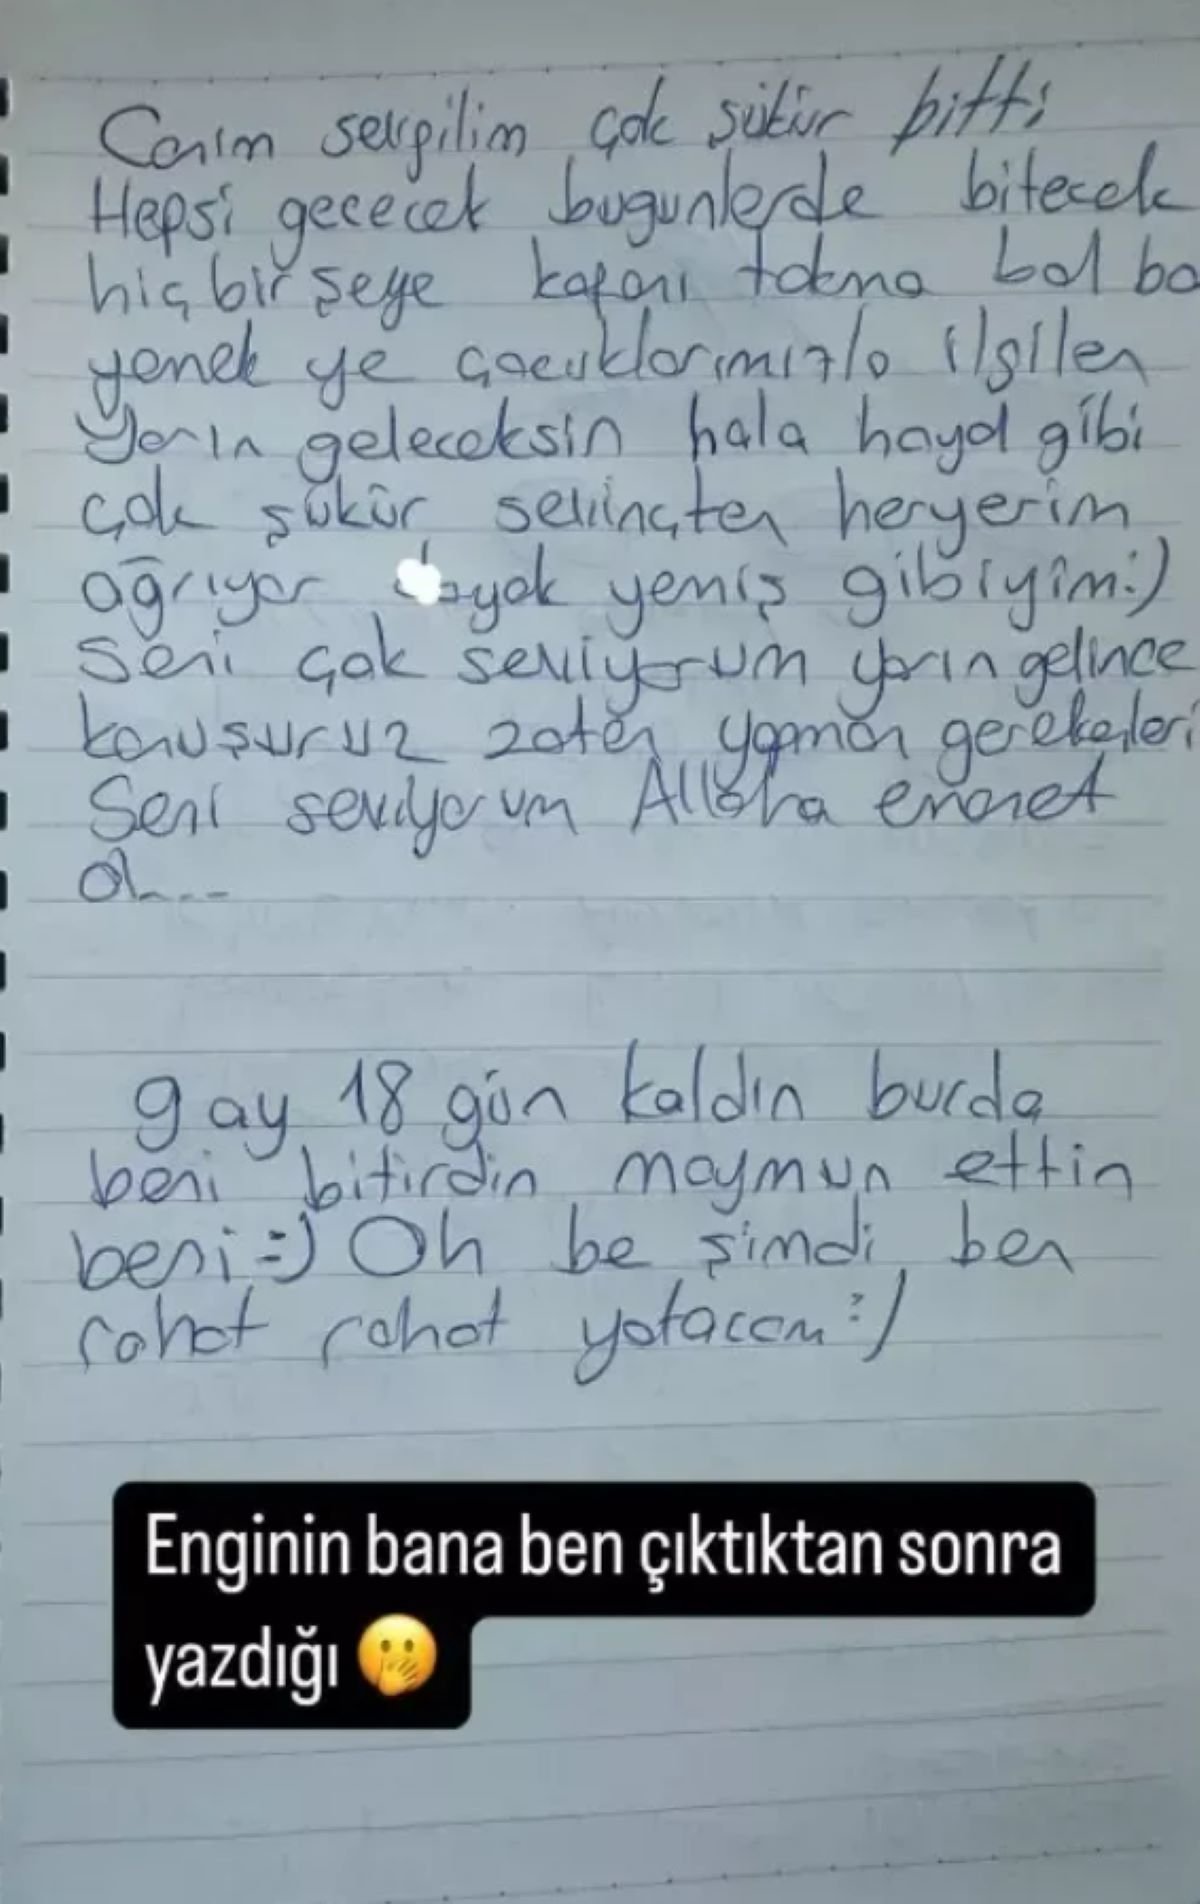 Canım sevgilim çok şükür bitti
Hepsi gececek bugunlerde bitecek
hiç bir şeye kafanı takma bol bo
yemek ye çocuklarımızla ilgilen
Yarın geleceksin hala hayal gibi
çok şükür sevinçten heryerim
ağrıyor dayak yemiş gibiyim:)
Seni çok seviyorum yarın gelince
konuşuruz zaten yapman gerekenleri
Seni seviyorum Allaha emanet
ol...
9 ay 18 gün kaldın burda
beni bitirdin maymun ettin
beni =) Oh be şimdi ben
rahat rahat yatacam :)
Enginin bana ben çıktıktan sonra
yazdığı 🫢